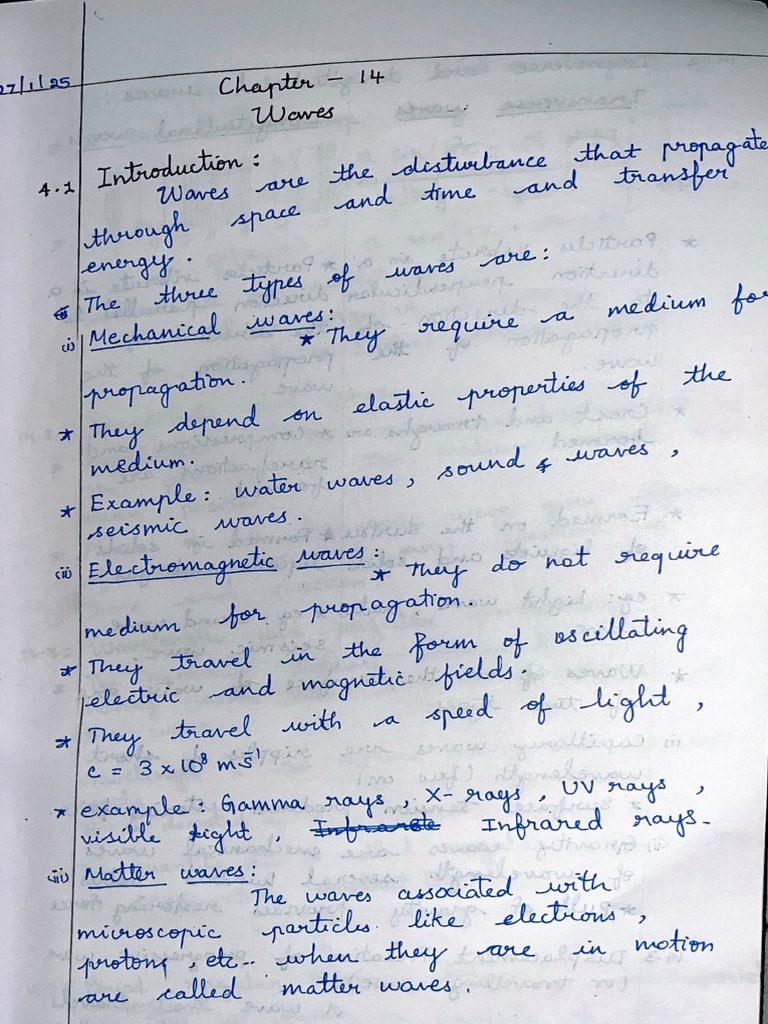 27/1/25
Chapter - 14
Waves
4.1 Introduction :
Waves are the disturbance that propagate
through space and time and transfer
energy.
The three types of waves are :
(i) Mechanical waves :
* They require a medium for
propagation.
* They depend on elastic properties of the
medium.
* Example : water waves , sound & waves ,
seismic waves .
(ii) Electromagnetic waves :
* They do not require
medium for propagation.
* They travel in the form of oscillating
electric and magnetic fields.
* They travel with a speed of light ,
c = 3 x 10⁸ ms⁻¹
* example : Gamma rays , X-rays , UV rays ,
visible light , Infrared rays.
(iii) Matter waves :
The waves associated with
microscopic particles like electrons ,
proton, , etc.. when they are in motion
are called matter waves .